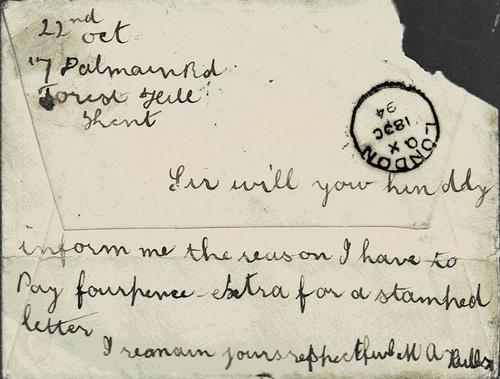 22nd
oct
17 Palmain Rd
Forest Hill
Kent
LONDON
X
18 DC
94
Sir will you kinddy
inform me the reason I have to
Pay fourpence extra for a stamped
letter
I reamain yours respectful M A